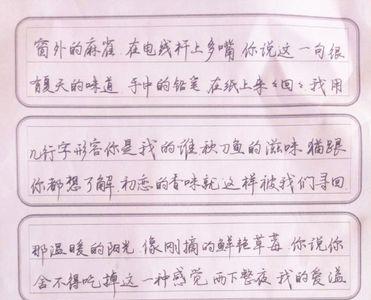 窗外的麻雀 在电线杆上多嘴 你说这一句很
有夏天的味道 手中的铅笔 在纸上来《回》我用
几行字形容你是我的谁 秋刀鱼的滋味 猫跟
你都想了解 初恋的香味就这样被我们寻回
那温暖的阳光 像刚摘的鲜艳草莓 你说你
舍不得吃掉这一种感觉 雨下整夜 我的爱溢